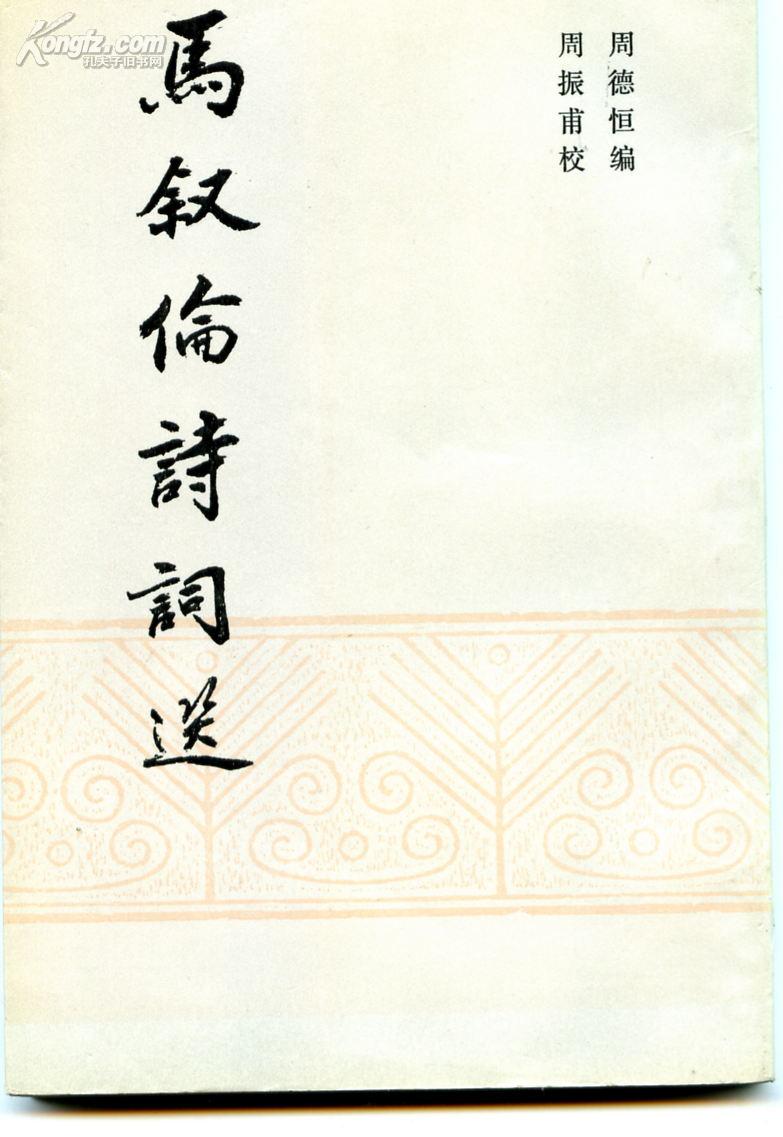 Kongfz.com
孔夫子旧书网
周德恒编
周振甫校
馬叙倫詩詞选